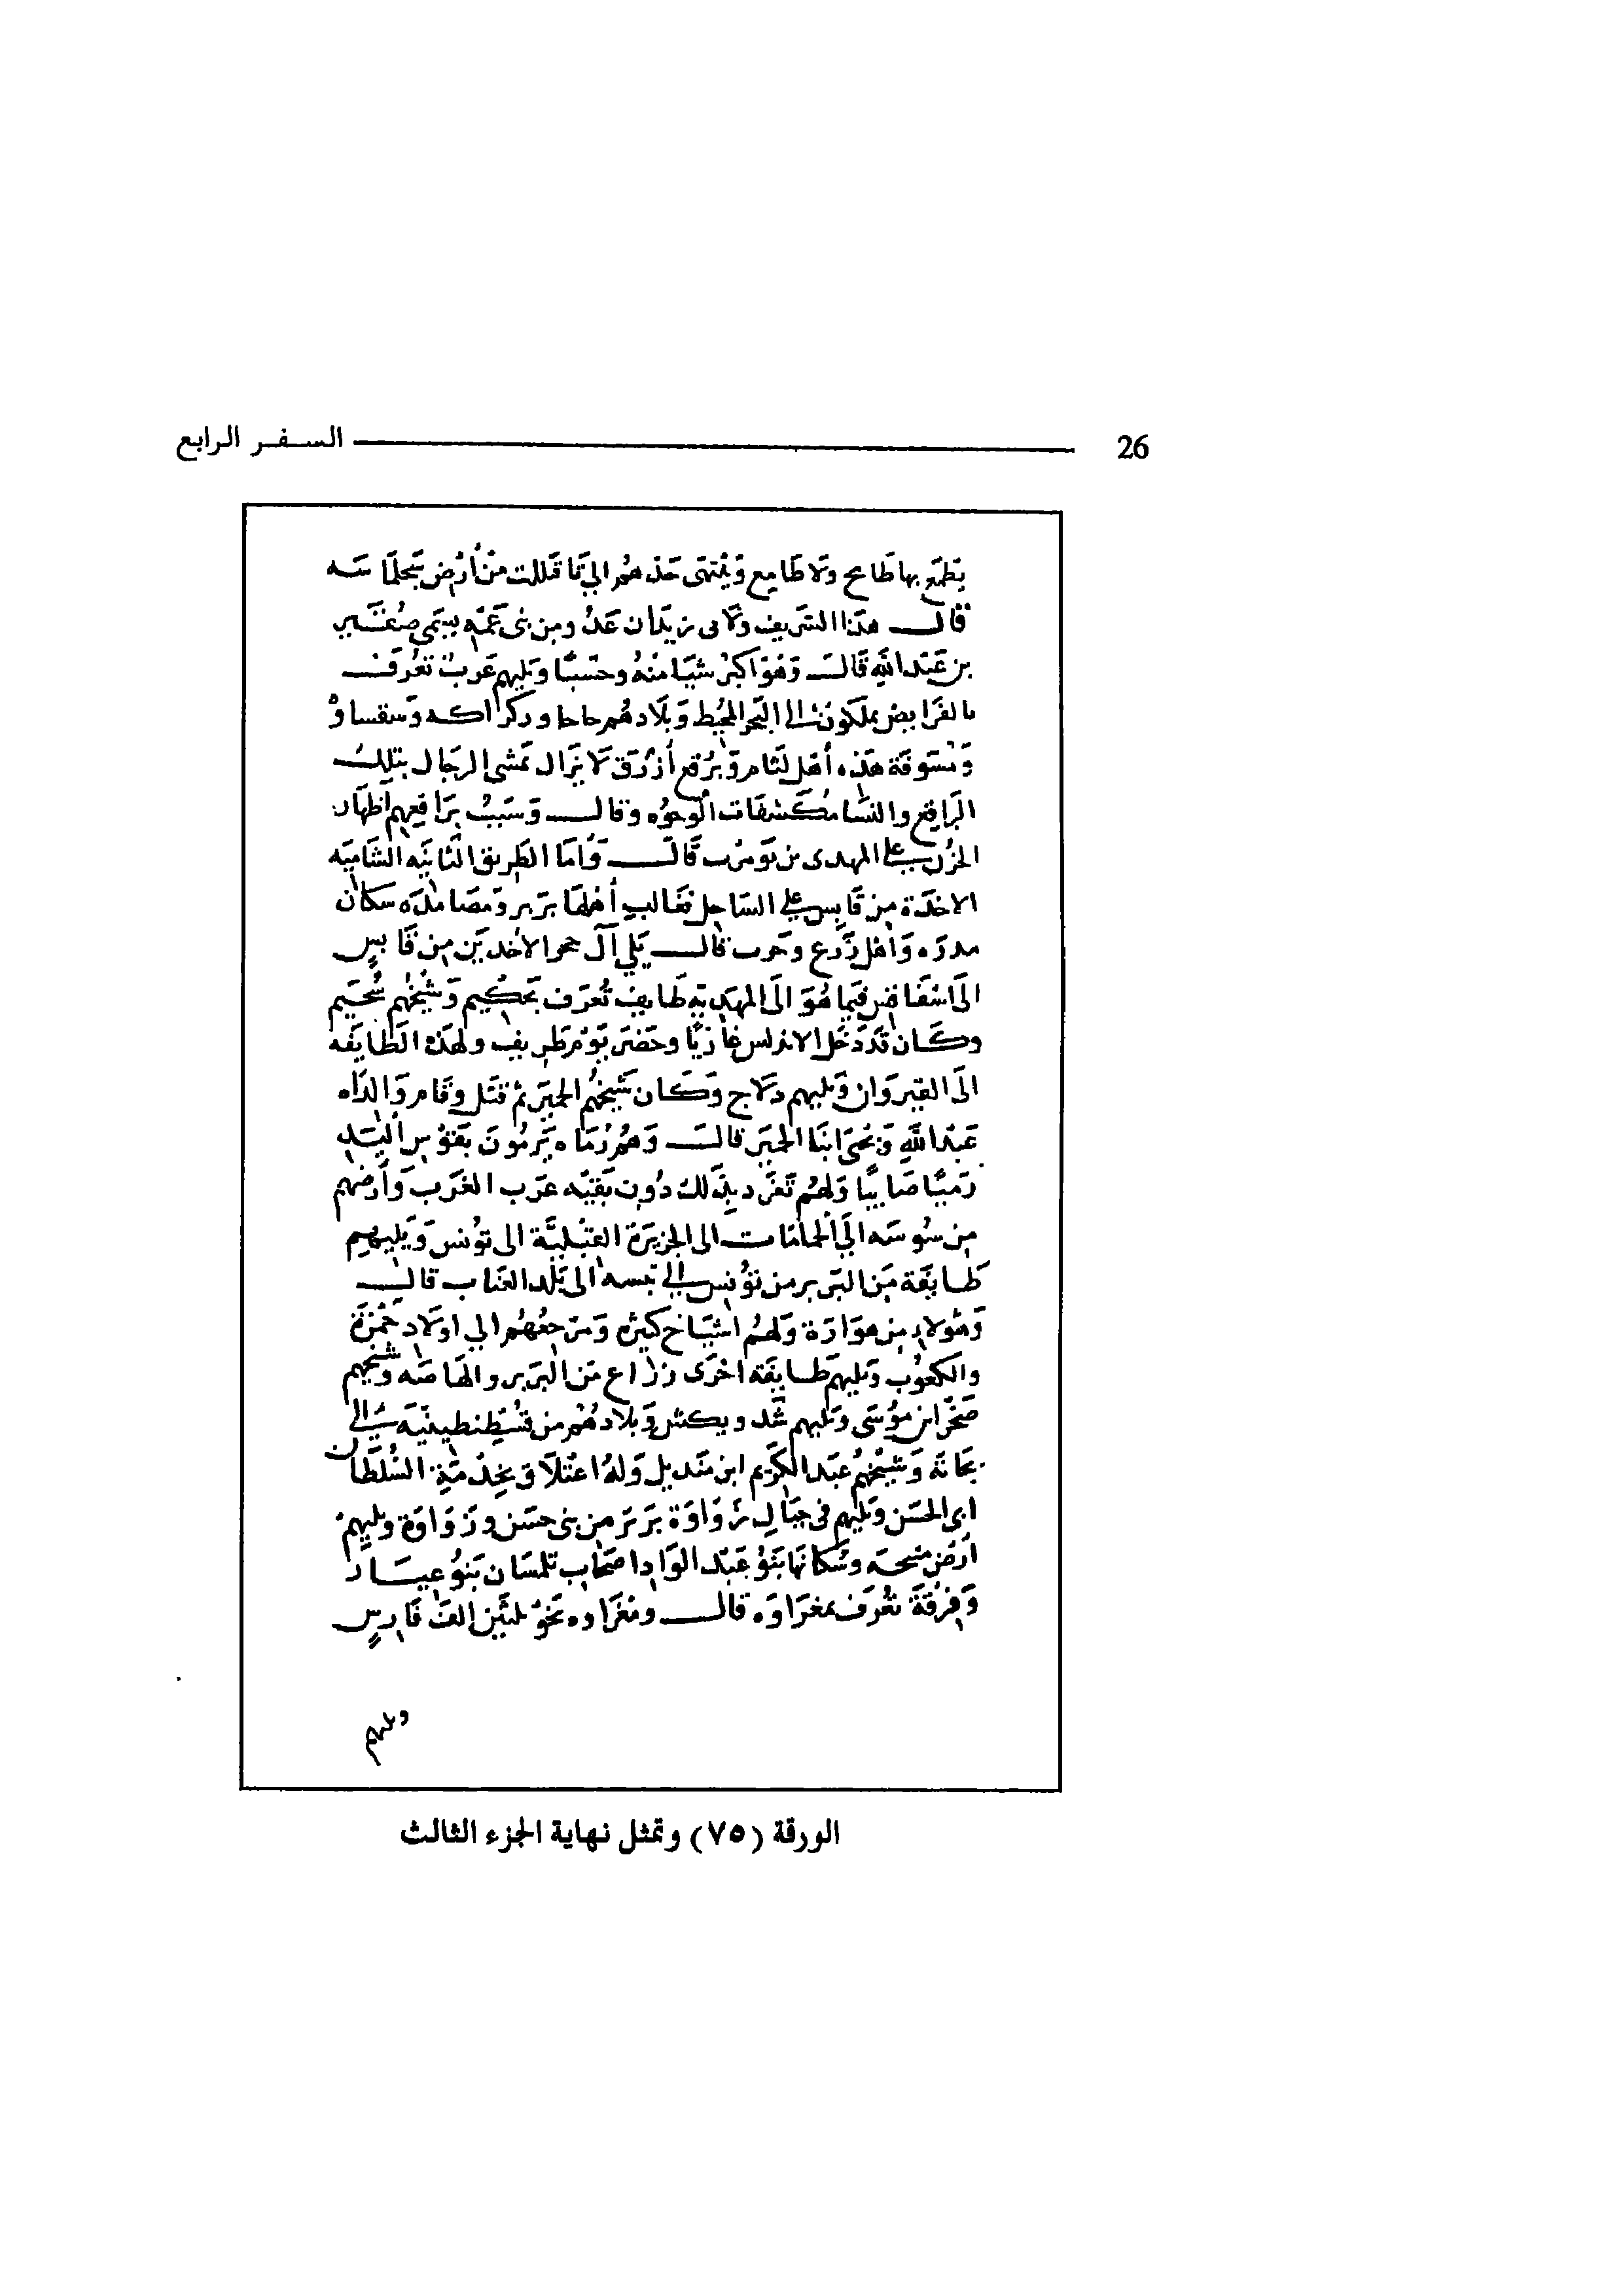 26 السفر الرابع
يطمع بها طامح ولا طامع وينتهى حد هم الي تاقللت من أرض سجلماسه
قال هذا الشريف ولابى زيدان عدُ ومن بنى عمّه يسمى
بن عبد الله قال وهو اكبر شيبا منه وحسبًا ويليهم عربُ تعرف
يملكون الى البحر المحيط وبلاد هم حاحا
ومسوفة هذه أهل لثام وبرقع أزرق لا يزال تمشى الرجال بتلك
البراقع والنسا مكشفات الوجوه وقال وسبب براقعهم اظهار
الحزن على المهدى بن تومرت قال وأما الطريق الثانيه الشاميه
الاخذة من قابس على الساحل فغالب أهلها بربر ومصامده سكان
مدره وأهل زرع وحرب قال يلي آل الاخدين من قابس
الى اسفاقس فيما هو الى المهديه طايف تعرف بحكيم وشيخهم سُحَيم
وكان قد دخل الاندلس غازيًا وحضر يوم طريف ولهذه الطايفه
الى القيروان ويليهم دلاج وكان شيخهم الحبر ثم قتل وقام والداه
عبد الله ويحيى ابنا الحبر قال وهم رماه يرمون بقوس اليد
رميًا صايبًا ولهم تفرد بذلك دون بقيه عرب الغرب وأرضهم
من سُوسه الى الحامات الى الجزيرة القبلية الى تونس ويليهم
طايفة من البربر من تونس الى تبسه الى بلد العناب قال
وهولاء من هوارة ولهم اشياخ كثيره ومرجعهم الي اولاد حمزة
والكعوب ويليهم طايفة اخرى زراع من البربر والهاصه وشيخهم
صخر ابن موسى ويليهم سد ويكش وبلاد هم من قسطنطينية الى
بجاية وشيخهم عبد الكريم ابن منديل وله اعتلاق بخدمة السلطان
ابى الحسن ويليهم فى جبال زواوة بربر من بنى حسن وزواوة ويليهم
أرض متيجه وسكانها بنو عبد الواد اصحاب تلمسان بنو
وفرقة تعرف بمغراوه قال ومغراوه نحو ثلثين الف فارس
ويليهم
الورقة (٧٥) وتمثل نهاية الجزء الثالث